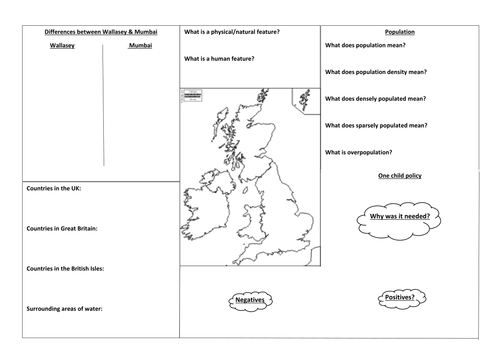 Differences between Wallasey & Mumbai
Wallasey
Mumbai
Countries in the UK:
Countries in Great Britain:
Countries in the British Isles:
Surrounding areas of water:
What is a physical/natural feature?
What is a human feature?
Negatives
Population
What does population mean?
What does population density mean?
What does densely populated mean?
What does sparsely populated mean?
What is overpopulation?
One child policy
Why was it needed?
Positives?